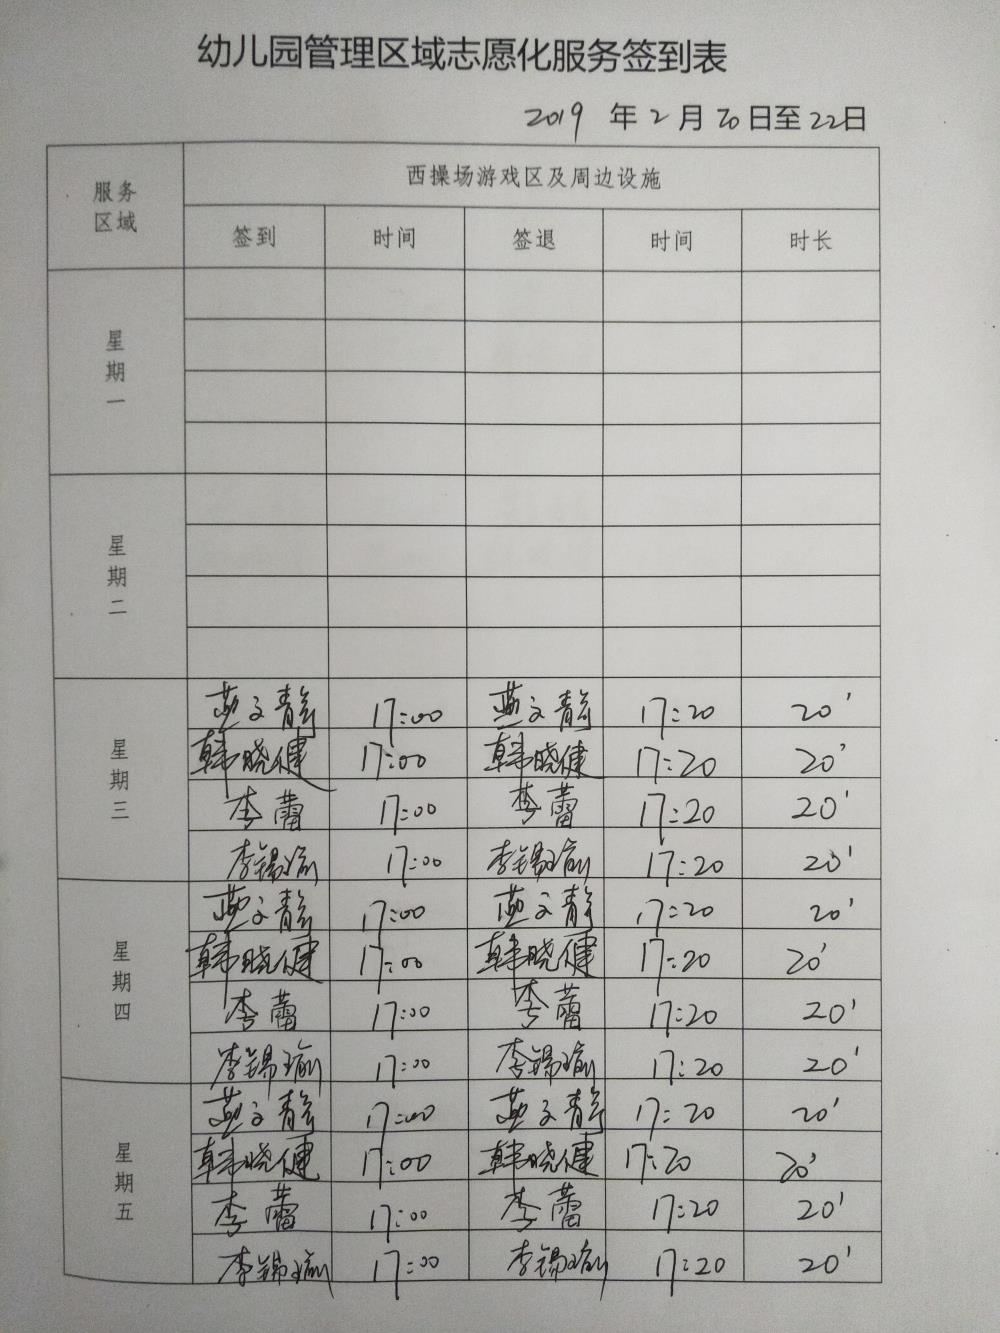 幼儿园管理区域志愿化服务签到表
2019 年 2 月 20 日至 22日
服务区域 西操场游戏区及周边设施
签到 时间 签退 时间 时长
星期一
星期二
星期三
燕文静 17:00 燕文静 17:20 20'
韩晓健 17:00 韩晓健 17:20 20'
李蕾 17:00 李蕾 17:20 20'
李锡瑜 17:00 李锡瑜 17:20 20'
星期四
燕文静 17:00 燕文静 17:20 20'
韩晓健 17:00 韩晓健 17:20 20'
李蕾 17:00 李蕾 17:20 20'
李锡瑜 17:00 李锡瑜 17:20 20'
星期五
燕文静 17:00 燕文静 17:20 20'
韩晓健 17:00 韩晓健 17:20 20'
李蕾 17:00 李蕾 17:20 20'
李锡瑜 17:00 李锡瑜 17:20 20'